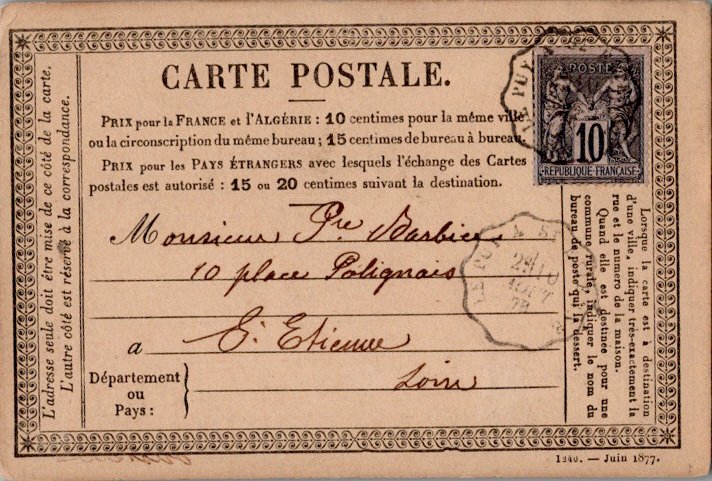 CARTE POSTALE.
PRIX pour la FRANCE et l'ALGÉRIE : 10 centimes pour la même ville
ou la circonscription du même bureau ; 15 centimes de bureau à bureau.
PRIX pour les PAYS ÉTRANGERS avec lesquels l'échange des Cartes
postales est autorisé : 15 ou 20 centimes suivant la destination.
L'adresse seule doit être mise de ce côté de la carte.
L'autre côté est réservé à la correspondance.
POSTE
10
RÉPUBLIQUE FRANÇAISE
LE PUY
Monsieur Pre Barbier
10 place Polignais
a St Etienne
Département
ou
Pays :
Loire
LE PUY A ST
29
79
Lorsque la carte est à destination
d'une ville, indiquer très-exactement la
rue et le numéro de la maison.
Quand elle est destinée pour une
commune rurale, indiquer le nom du
bureau de poste qui la dessert.
1240. — Juin 1877.